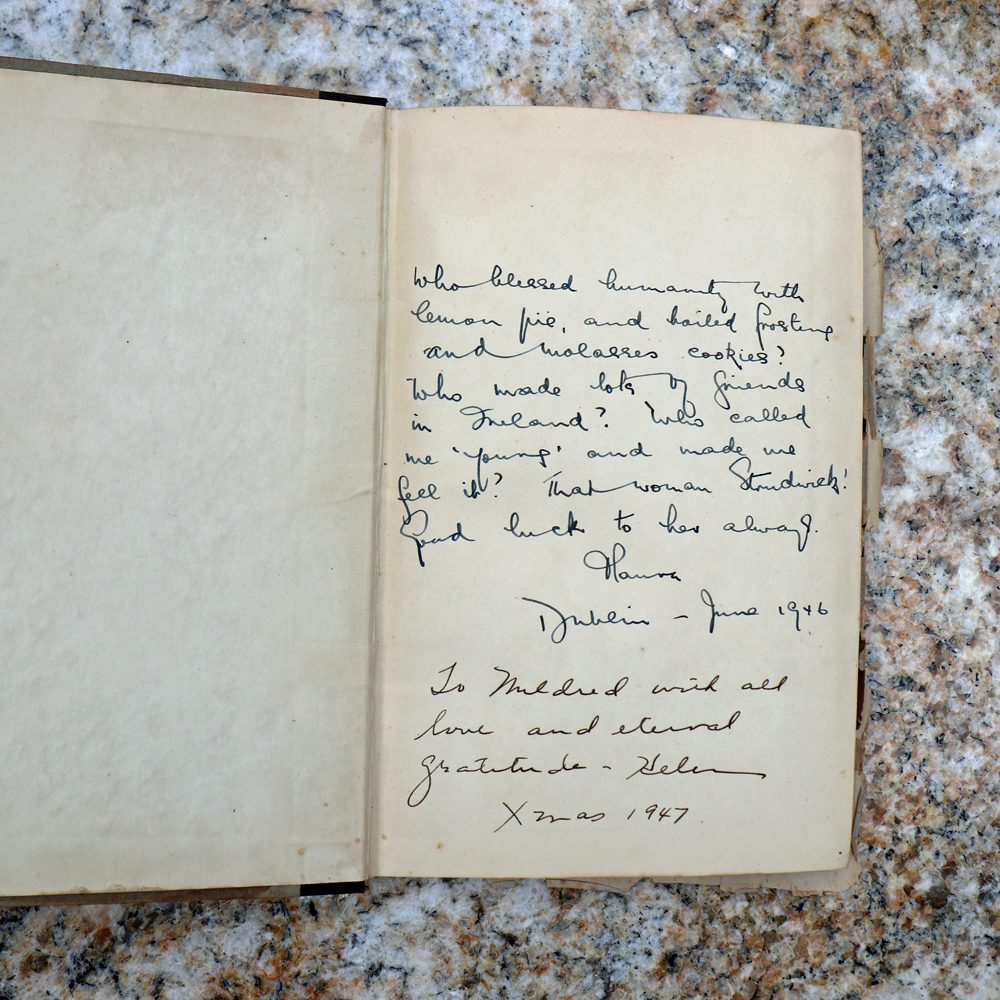 Who blessed humanity with
lemon pie, and boiled frosting
and molasses cookies?
Who made lots of friends
in Ireland? Who called
me 'young' and made me
feel it? That woman Strudwick!
Good luck to her always.
Maura
Dublin – June 1946
To Mildred with all
love and eternal
gratitude – Helen
Xmas 1947